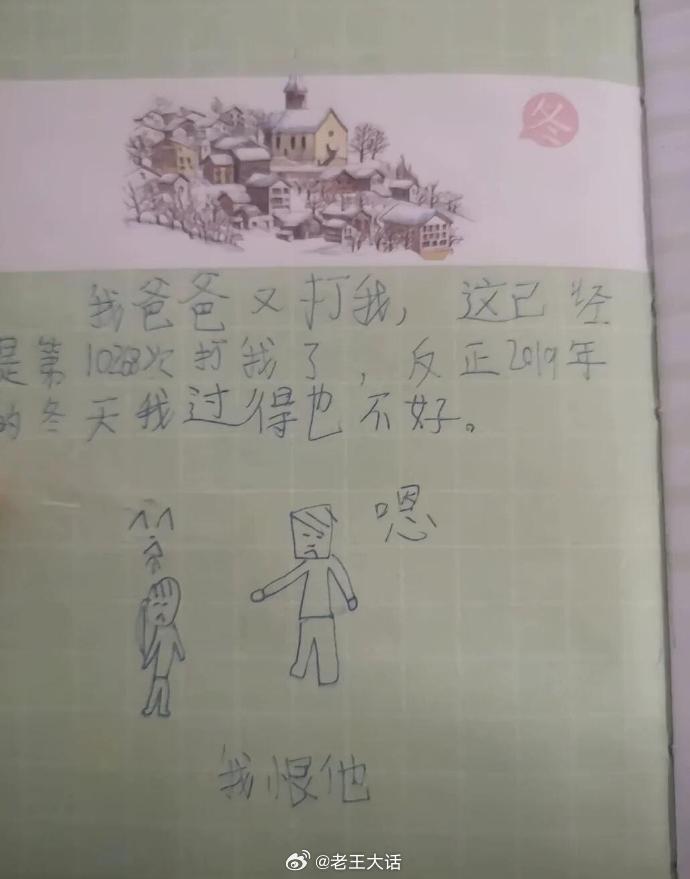 冬
我爸爸又打我，这已经
是第1028次打我了，反正2019年
的冬天我过得也不好。
嗯
我恨他
@老王大话